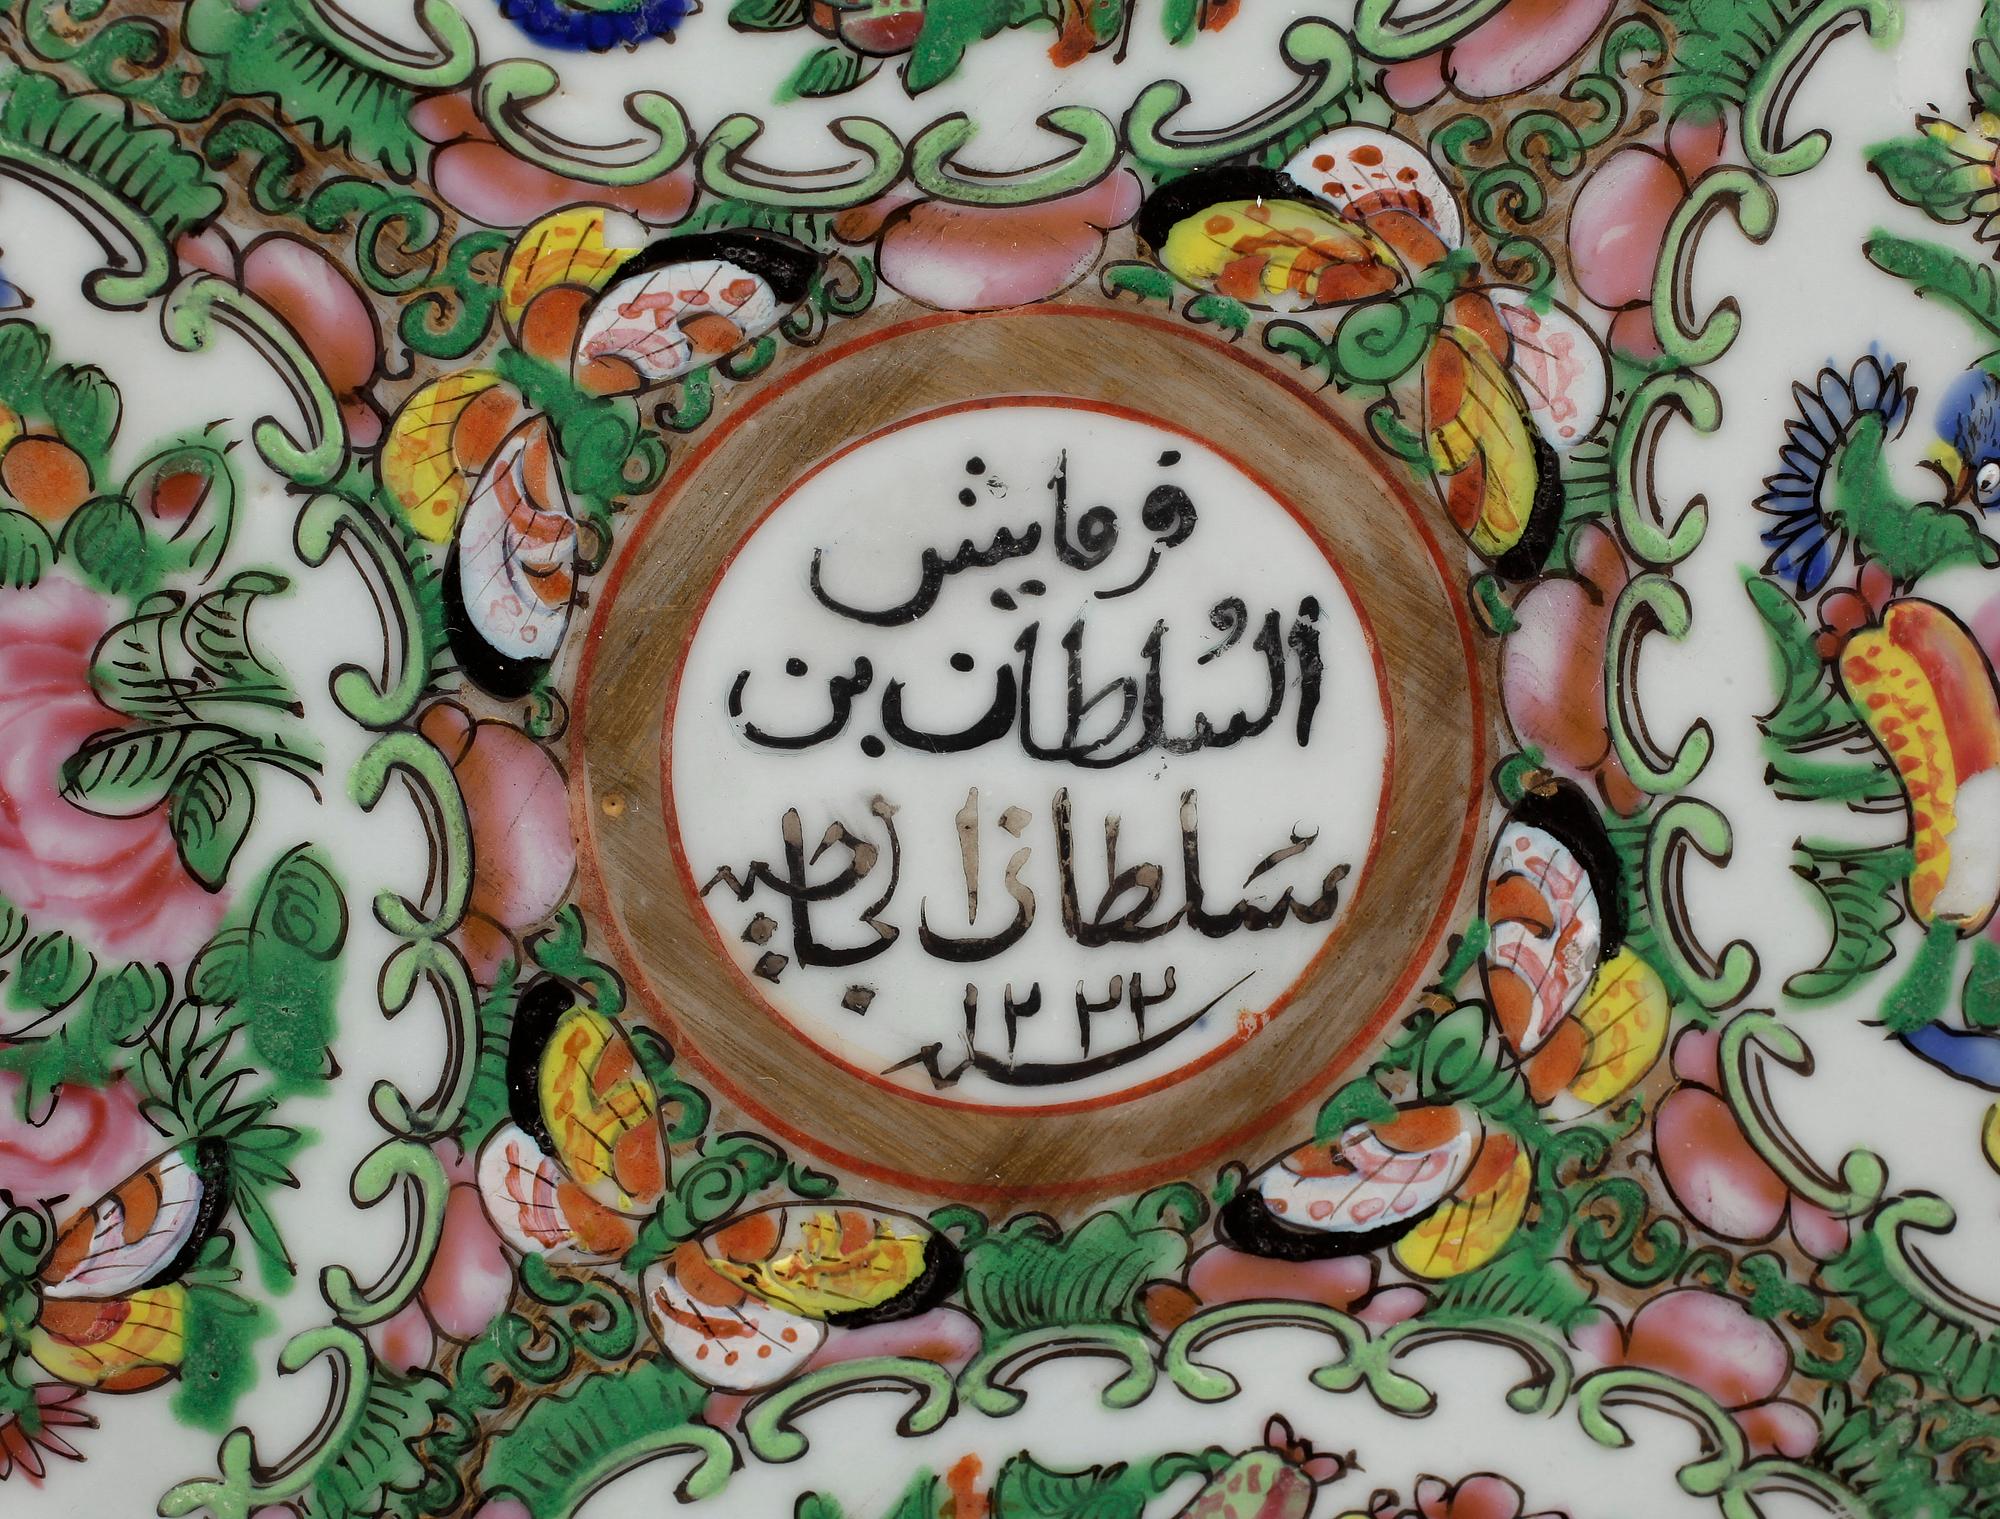 فرمايش
السُلطان بن
سَلطان
سنه ١٢٢٢